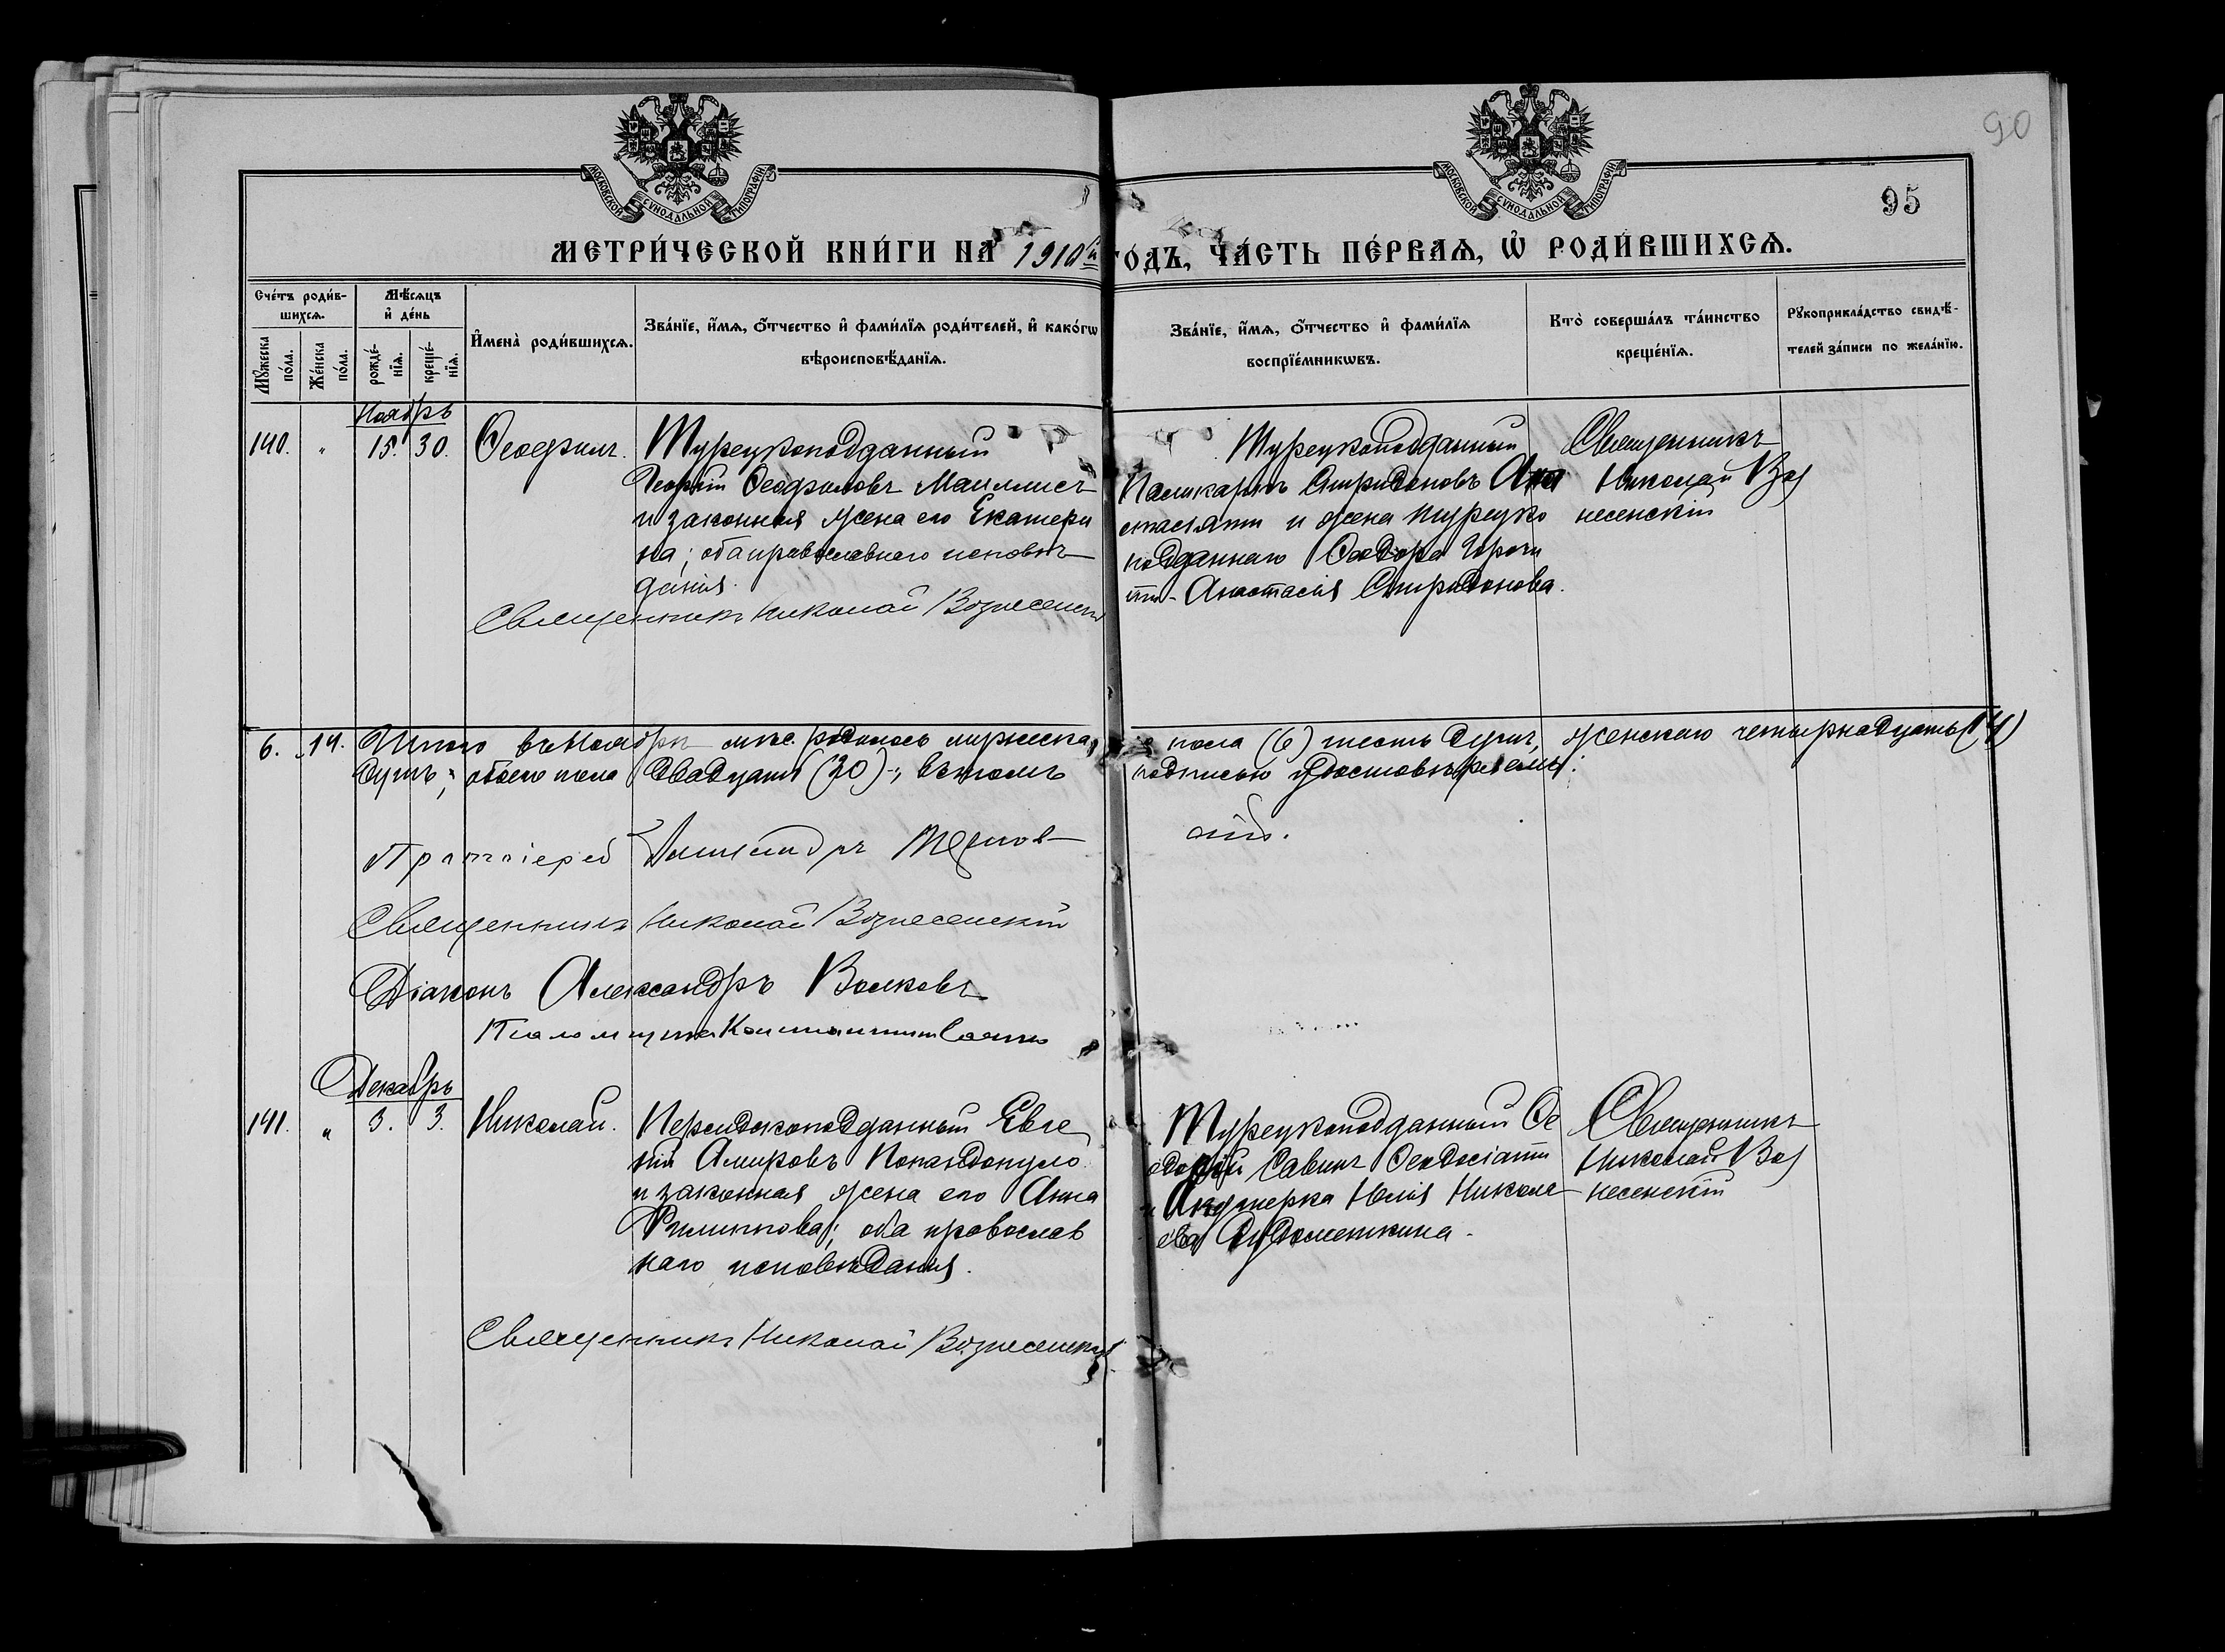 90
95
МОСКОВСКОЙ СѴНОДАЛЬНОЙ ТИПОГРАФІИ
МОСКОВСКОЙ СѴНОДАЛЬНОЙ ТИПОГРАФІИ
МЕТРИ́ЧЕСКОЙ КНИ́ГИ НА 1910й ГО́ДЪ, ЧА́СТЬ ПЕ́РВАѦ, Ѡ҆ РОДИ́ВШИХСѦ.
Сче́тъ роди́в-
шихсѧ.
Мꙋ́жеска по́ла.
Же́нска по́ла.
Мѣ́сѧцъ
и҆ де́нь
рожде́-
нїѧ.
креще́-
нїѧ.
И҆мена̀ роди́вшихсѧ.
Зва́нїе, и҆́мѧ, ѻ҆́тчество и҆ фами́лїѧ роди́телей, и҆ како́гѡ
вѣроисповѣ́данїѧ.
Зва́нїе, и҆́мѧ, ѻ҆́тчество и҆ фами́лїѧ
воспрїе́мникѡвъ.
Кто̀ соверша́лъ та́инство
креще́нїѧ.
Рꙋкоприкла́дство свидѣ́-
телей за́писи по жела́нїю.
Ноябрь
140. " 15. 30. Ѳеофилъ. Турецкоподданный
Георгій Ѳеофиловъ
и законная жена его Екатери
на; оба православнаго исповѣ-
данія.
Священникъ Николай Вознесенскій
Турецкоподданный
Поликарпъ Спиридоновъ Ана
стасіяти и жена турецко
подданнаго Ѳеодора
Анастасія Спиридонова.
Священникъ
Николай Воз
несенскій
6. 14. Итого въ Ноябрѣ мѣс. родилось мужеска пола (6) шесть душъ, женскаго четырнадцать (14)
душъ; обоего пола двадцать (20); въ томъ подписью удостовѣряемъ:
Протоіерей
Священникъ Николай Вознесенскій
Діаконъ Александръ Волковъ
Псаломщикъ Константинъ
Декабрь
141. " 3. 3. Николай. Персидскоподданный Евге
ній Амировъ Попандопуло
и законная жена его Анна
Филиппова; оба православ
наго исповѣданія.
Священникъ Николай Вознесенскій
Турецкоподданный Ѳе
Саввинъ Ѳеодосіати
и Акушерка Юлія Никола
ева
Священникъ
Николай Воз
несенскій